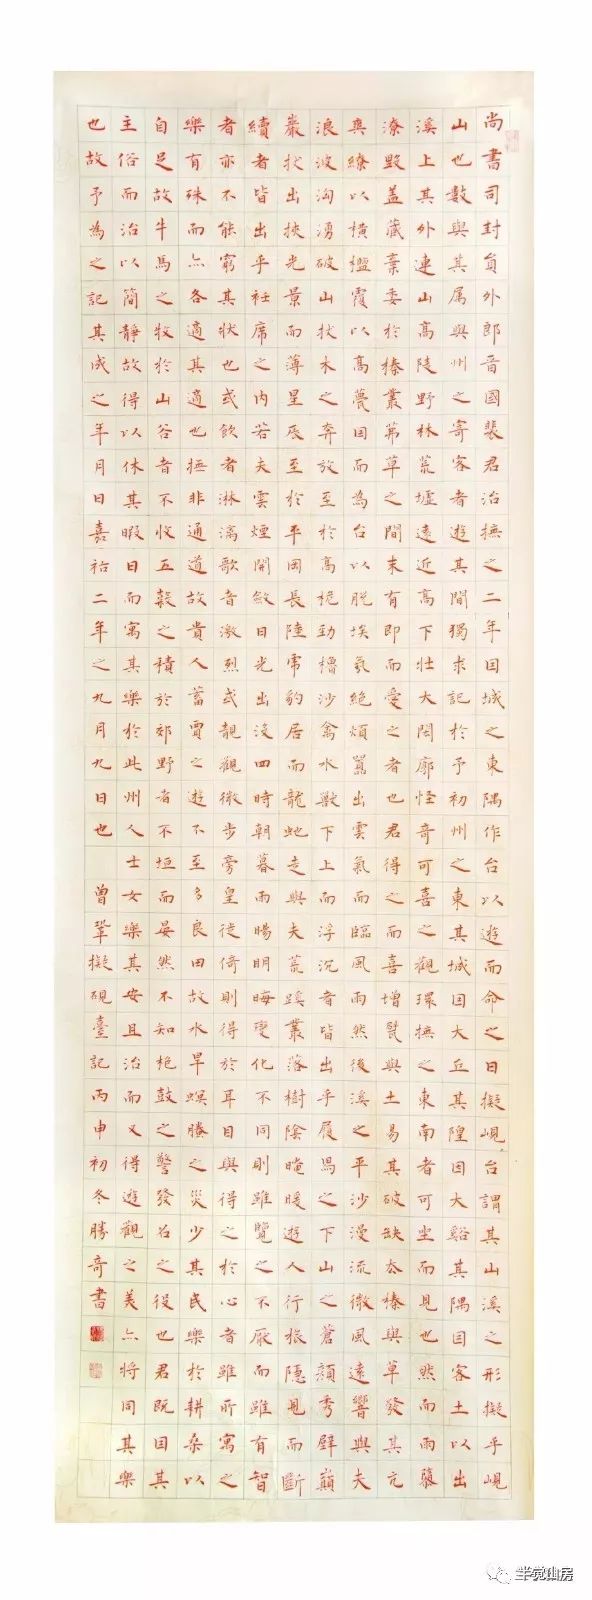 尚書司封員外郎晉國裴君治撫之二年因城之東隅作台以遊而命之曰擬峴台謂其山溪之形擬乎峴
山也數與其属與州之寄客者遊其間獨求記於予初州之東其城因大丘其隍因大谿其隅因客土以出
溪上其外連山高陵野林荒墟遠近高下壯大閎廓怪奇可喜之觀環撫之東南者可坐而見也然而雨隳
潦毀蓋藏棄委於榛叢茀草之間未有即而愛之者也君得之而喜增甓與土易其破缺去榛與草發其亢
爽繚以橫檻覆以高甍因而為台以脫埃氛絕煩囂出雲氣而臨風雨然後溪之平沙漫流微風遠響與夫
浪波洶湧破山拔木之奔放至於高桅勁櫓沙禽水獸下上而浮沉者皆出乎履舄之下山之蒼顏秀壁巔
巖拔出挾光景而薄星辰至於平岡長陸虎豹居而龍虵走與夫荒蹊叢落樹陰晻曖遊人行旅隱見而斷
續者皆出乎衽席之内若夫雲煙開斂日光出沒四時朝暮雨暘明晦變化不同則雖覽之不厭而雖有智
者亦不能窮其狀也或飲者淋漓歌者激烈或靚觀微步旁皇徙倚則得於耳目與得之於心者雖所寓之
樂有殊而亦各適其適也撫非通道故貴人蓄賈之遊不至多良田故水旱螟螣之災少其民樂於耕桑以
自足故牛馬之牧於山谷者不收五穀之積於郊野者不垣而晏然不知枹鼓之警發召之役也君既因其
主俗而治以簡靜故得以休其暇日而寓其樂於此州人士女樂其安且治而又得遊觀之美亦將同其樂
也故予為之記其成之年月日嘉祐二年之九月九日也 曾鞏擬硯臺記丙申初冬勝奇書
半觉幽房